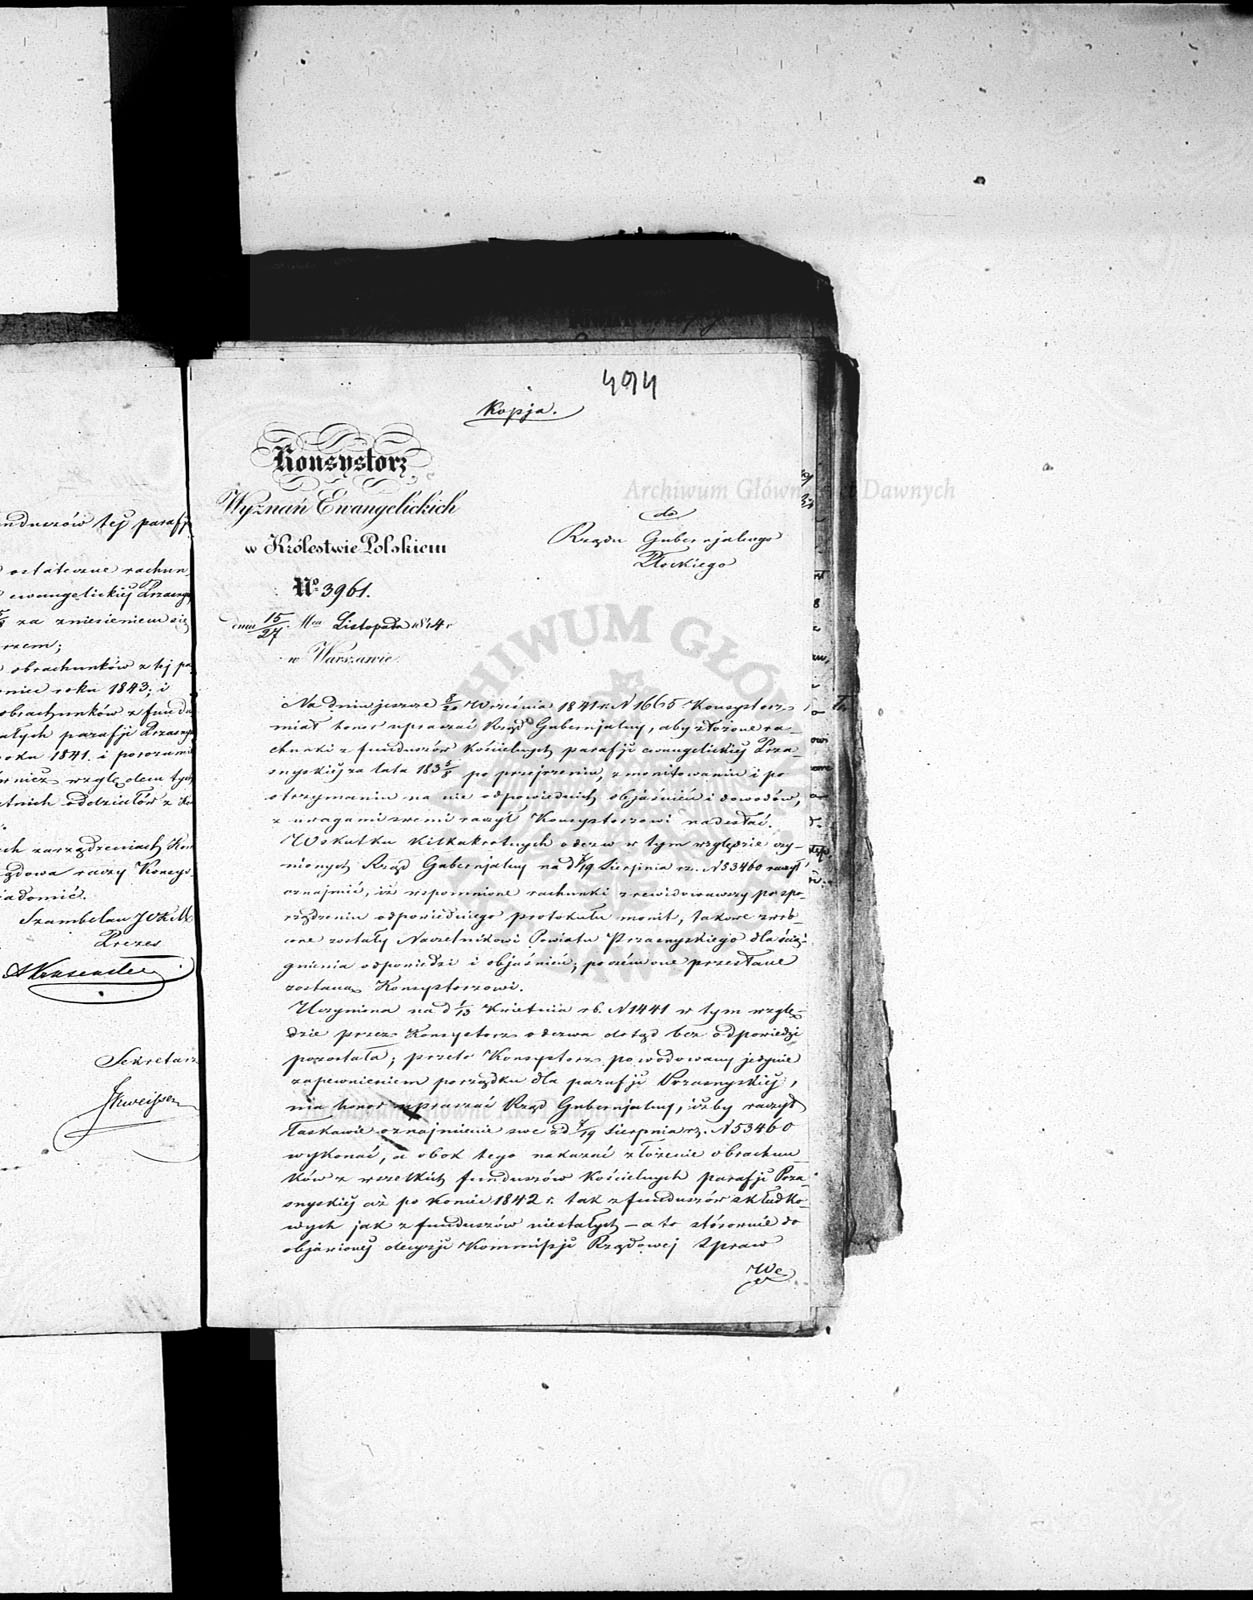 nduszów tej parafji
ostateczne rachun
ewangelickiej Przasny
za zniesieniem się
rzem;
obrachunków z tej pa
nie roku 1843; i
obrachunków z fundu
ałych parafji Przasny
oku 1841. i porozumi
ównież względem tych
tnich oddziałów z Ko
ch zarządzeniach Kon
ządowa raczy Konsys
iadomić.
Szambelan J.C.K.M.
Prezes
Sekretarz
494
Kopja.
Konsystorz
Wyznań Ewangelickich
w Królestwie Polskiem
№ 3961.
dnia 15/27 Mca Listopada 1844 r
w Warszawie.
Archiwum Główne Akt Dawnych
do
Rządu Gubernjalnego
Płockiego
Na dniu jeszcze 8/20 Września 1841 r. N 1665 Konsystorz
miał honor upraszać Rząd Gubernjalny, aby złożone ra-
chunki z funduszów Kościelnych parafji ewangelickiej Prza-
snyskiej za lata 183 5/8 po przejrzeniu, zmonitowaniu i po
otrzymaniu na nie odpowiednich objaśnień i dowodów,
z uwagami swemi raczył Konsystorzowi nadesłać.
Wskutku kilkakrotnych odezw w tym względzie czy-
nionych Rząd Gubernjalny na d 7/19 Sierpnia rz. N 53460 raczył
oznajmić, iż wspomnione rachunki zrewidowawszy po spo-
rządzeniu odpowiedniego protokułu monit, takowe zwró-
cone zostały Naczelnikowi Powiatu Przasnyskiego dla ścią-
gnienia odpowiedzi i objaśnień; poczém one przesłane
zostaną Konsystorzowi.
Uczyniona na d 1/13 Kwietnia rb. N 1441 w tym wzglę-
dzie przez Konsystorz odezwa dotąd bez odpowiedzi
pozostała; przeto Konsystorz powodowany jedynie
zapewnieniem porządku dla parafji Przasnyskiej,
ma honor upraszać Rząd Gubernjalny, iżby raczył
łaskawie oznajmienie swe z d 7/19 Sierpnia rz. N 53460
wykonać, a obok tego nakazać złożenie obrachun
ków z wszelkich funduszów Kościelnych parafji Prza-
snyskiej aż po koniec 1842 r. tak z funduszów składko-
wych jak z funduszów niestałych – a to stósownie do
objawionej decyzji Kommissji Rządowej Spraw
We